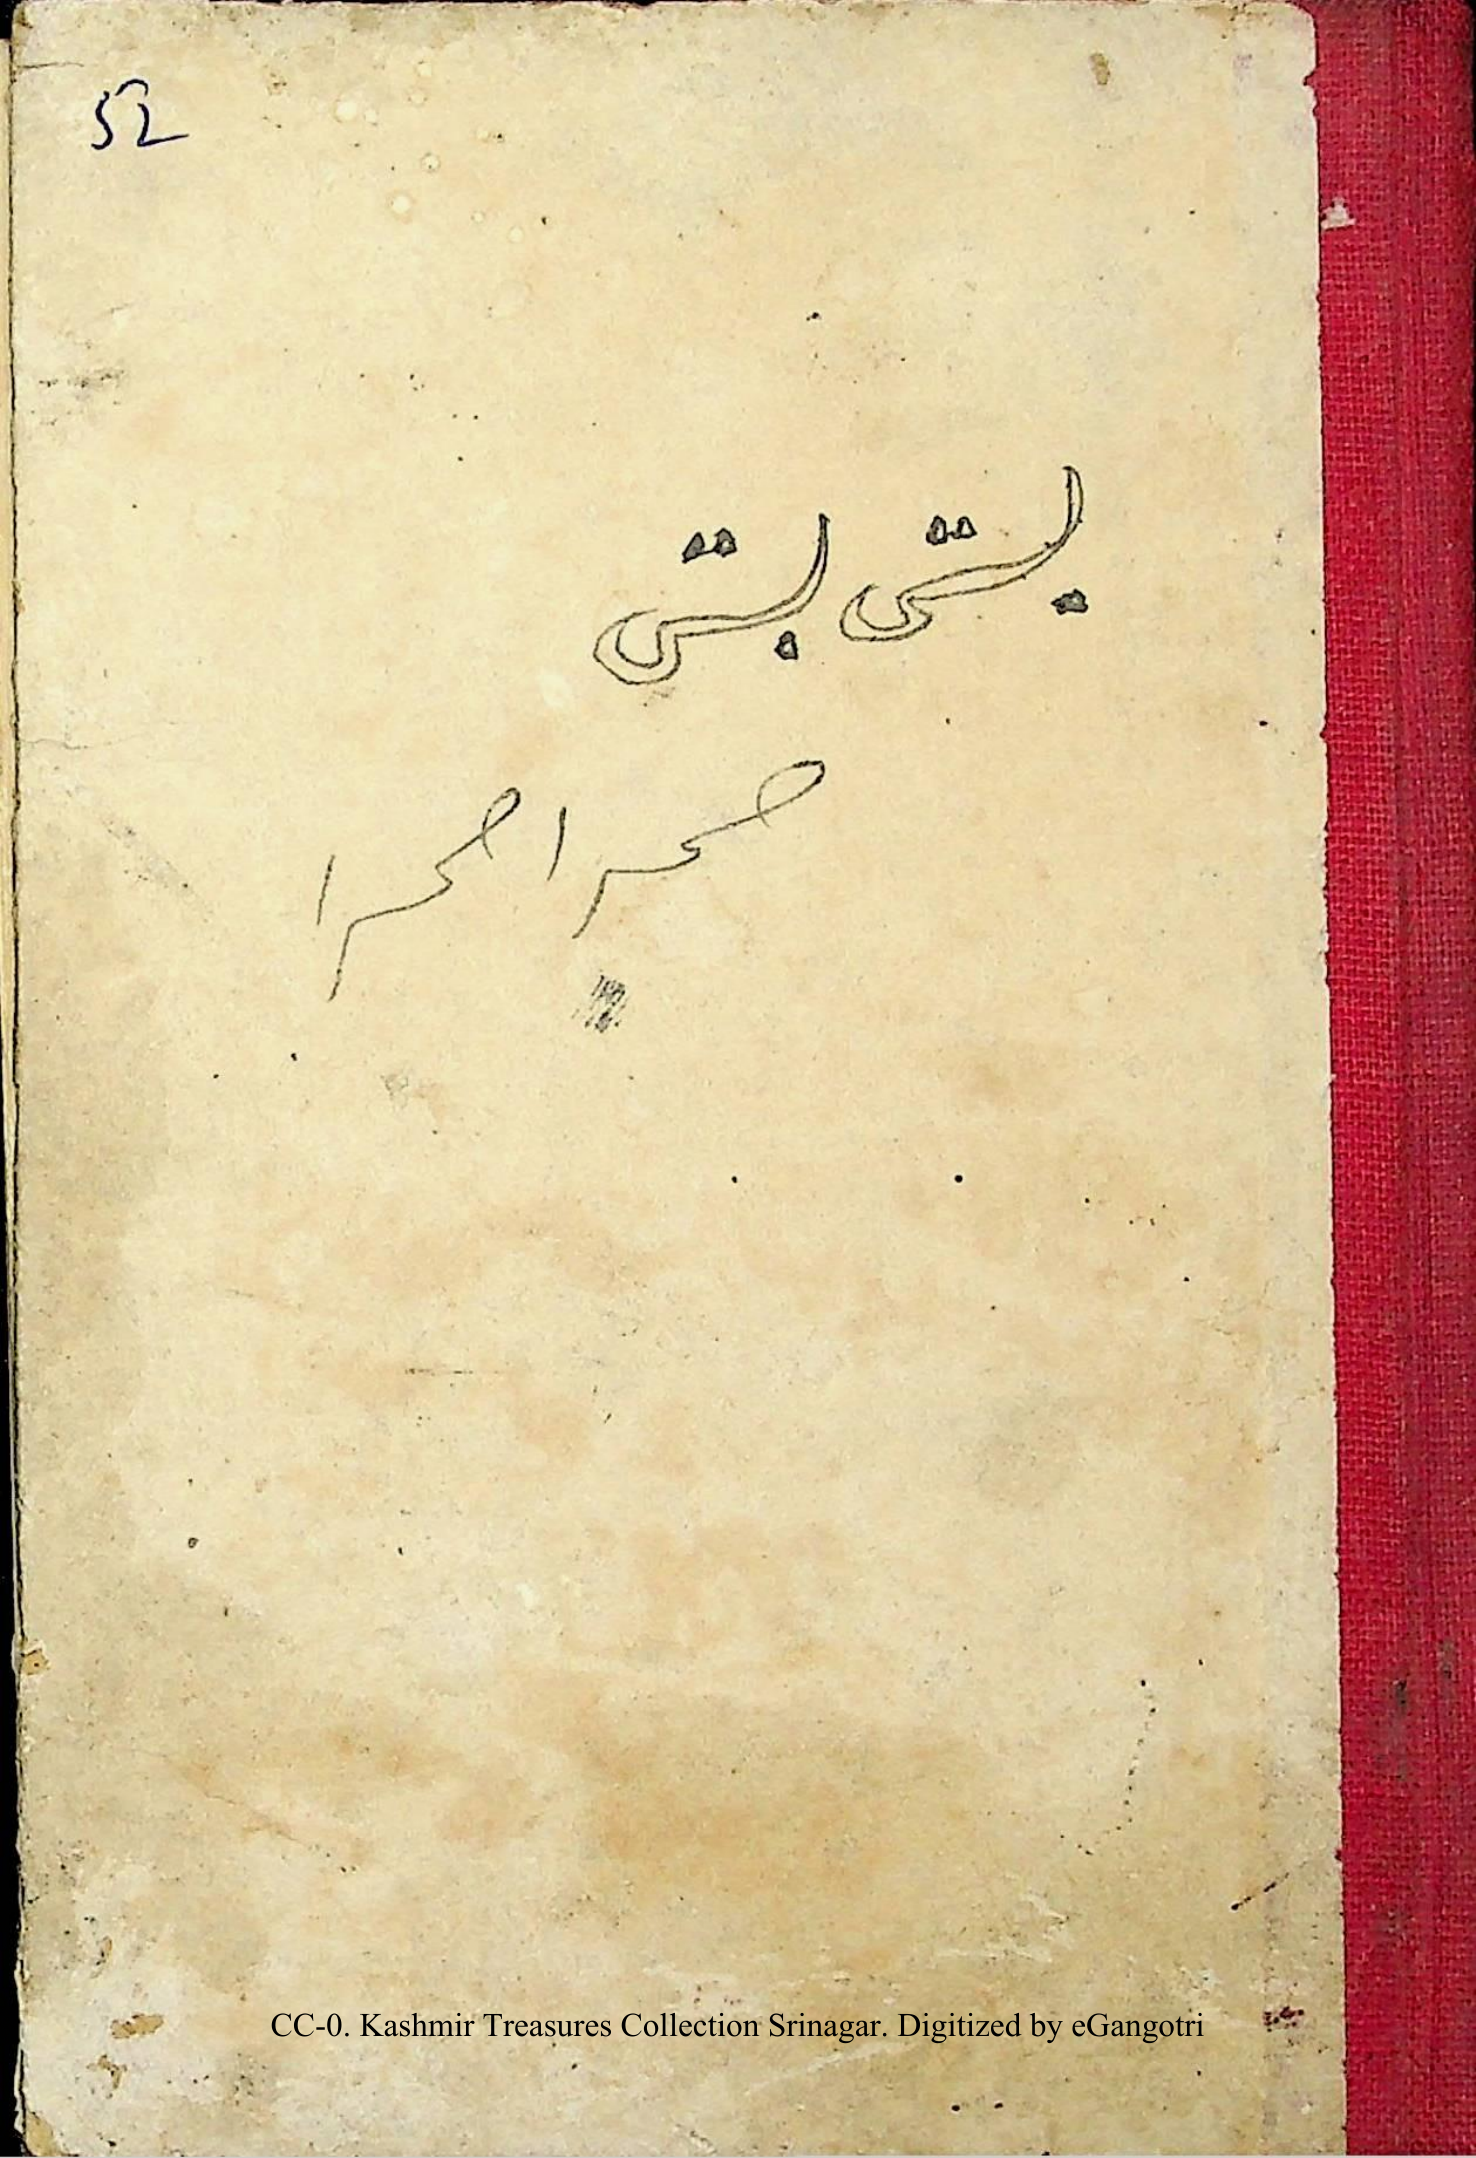 52
بستی بستی
صحرا صحرا
CC-0. Kashmir Treasures Collection Srinagar. Digitized by eGangotri